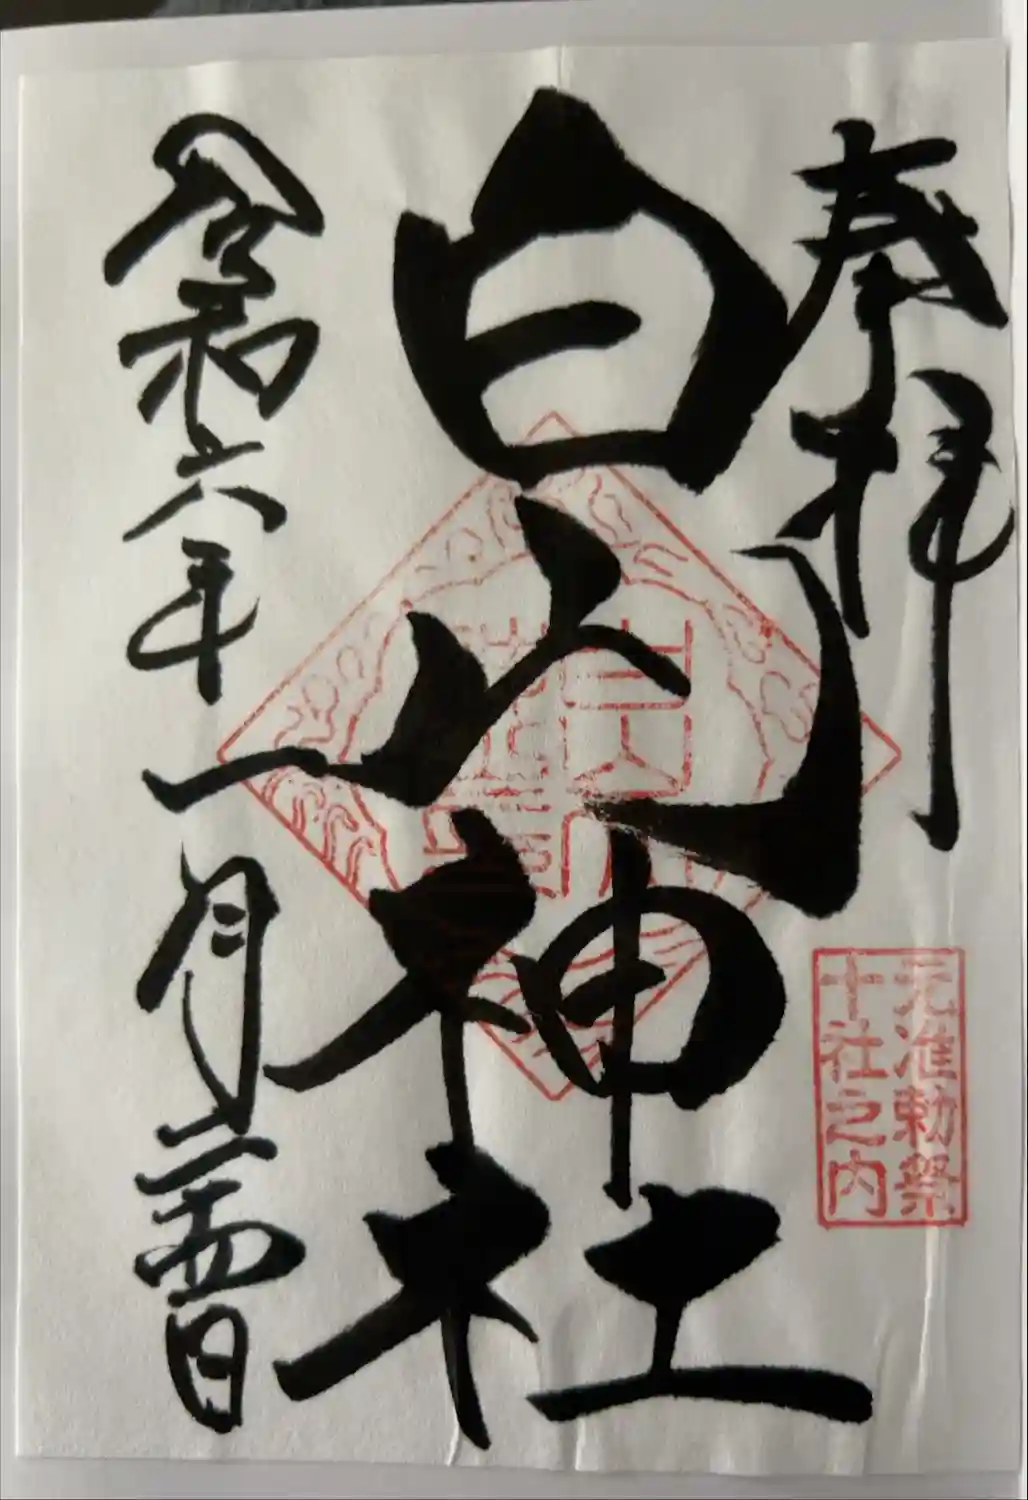 奉拝
白山神社
元准勅祭
十社之内
令和六年一月二十四日